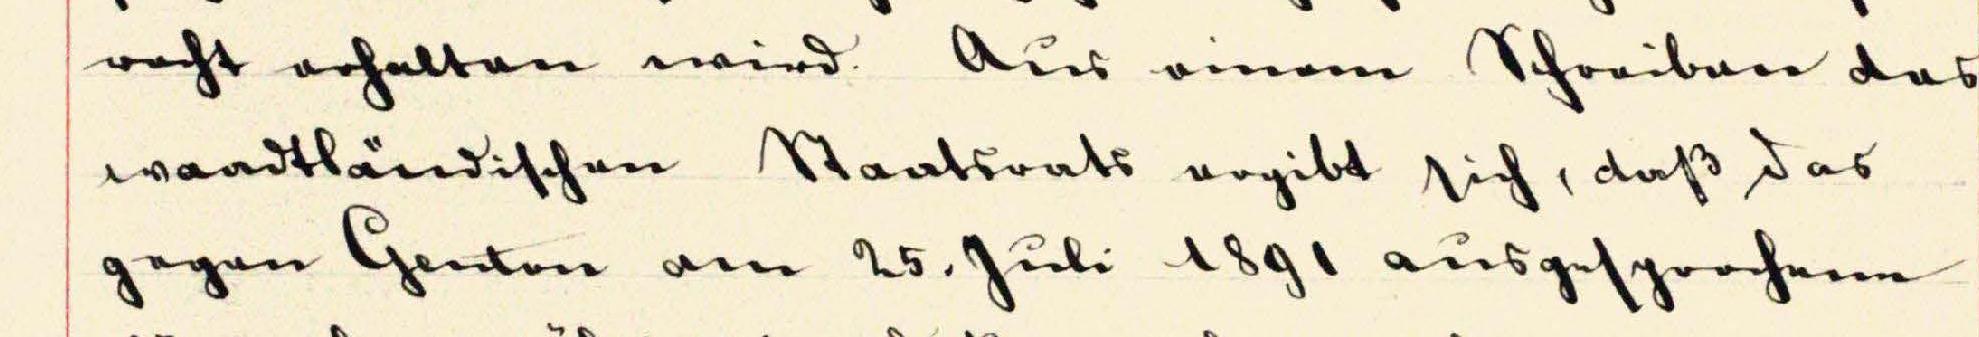 recht erhalten wird. Aus einem Schreiben des
waadtländischen Staatsrats ergibt sich, daß das
gegen Genton am 25. Juli 1891 ausgesprochene